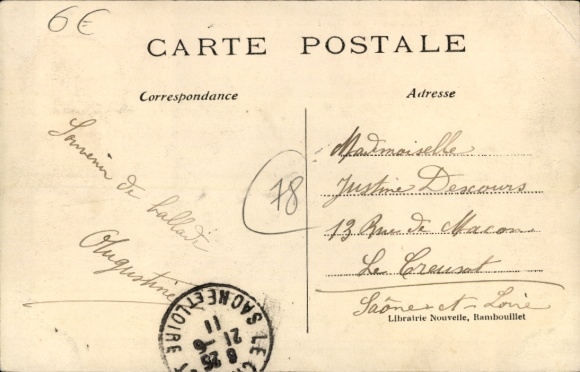 6€
CARTE POSTALE
Correspondance
Adresse
Souvenir de ballade
Augustine
78
Mademoiselle
Justine Descours
13 Rue de Macon
Le Creusot
Saône et Loire
Librairie Nouvelle, Rambouillet
SAONE ET LOIRE
LE C
8 25
21 -6
11